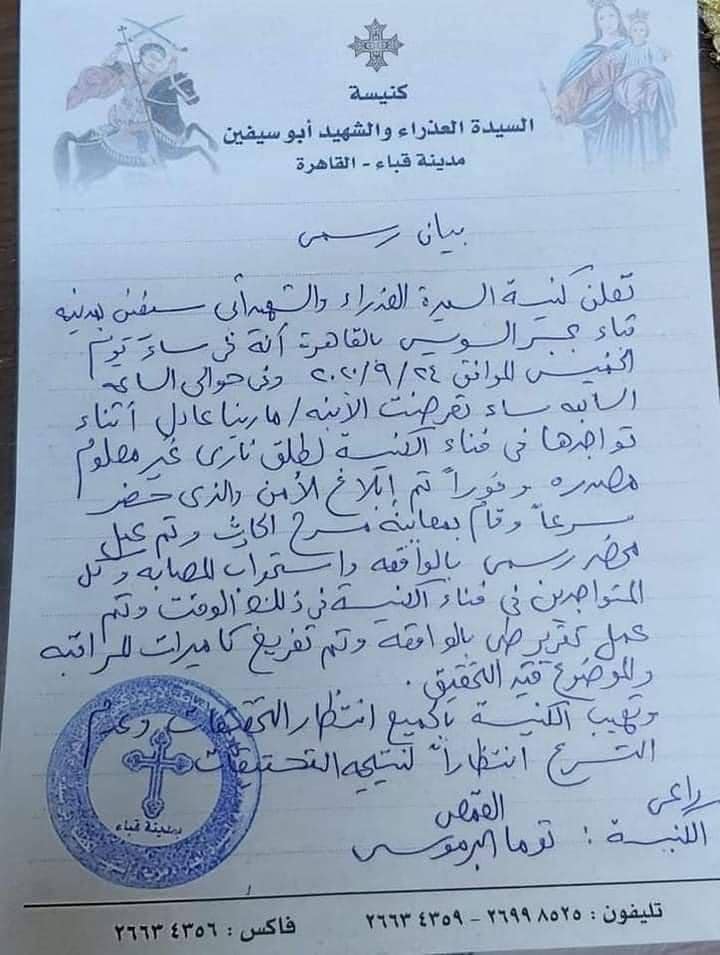 كنيسة
السيدة العذراء والشهيد أبو سيفين
مدينة قباء - القاهرة
بيان رسمى
تعلن كنيسة السيدة العذراء والشهيد أبى سيفين بمدينه
قباء بجسر السويس بالقاهرة أنة فى مساء يوم
الخميس الموافق ٢٤ / ٩ / ٢٠٢٠ وفى حوالى الساعه
السابعه مساء تعرضت الأبنه / مارينا عادل أثناء
تواجدها فى فناء الكنيسة لطلق نارى غير معلوم
مصدره وفوراً تم إبلاغ الأمن والذى حضر
سرعاً وقام بمعاينه مسرح الحادث وتم عمل
محضر رسمى بالواقعه واستجواب المصابه وكل
المتواجدين فى فناء الكنيسة فى ذلك الوقت وتم
عمل تقرير طبى بالواقعه وتم تفريغ كاميرات المراقبه
والموضوع قيد التحقيق .
وتهيب الكنيسة بالجميع انتظار التحقيقات وعدم
التسرع انتظاراً لنتيجه التحقيقات
راعى
الكنيسة : القمص توما البرموسى
مدينة قباء
تليفون : ٢٦٩٩ ٨٥٢٥ - ٢٦٦٣ ٤٣٥٩ فاكس : ٢٦٦٣ ٤٣٥٦